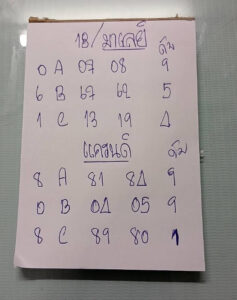 18/มาเลย์ ดับ
0 A 07 08 9
6 B 67 62 5
1 C 13 19 Δ
แครนดี ดับ
8 A 81 8Δ 9
0 B 0Δ 05 9
8 C 89 80 1